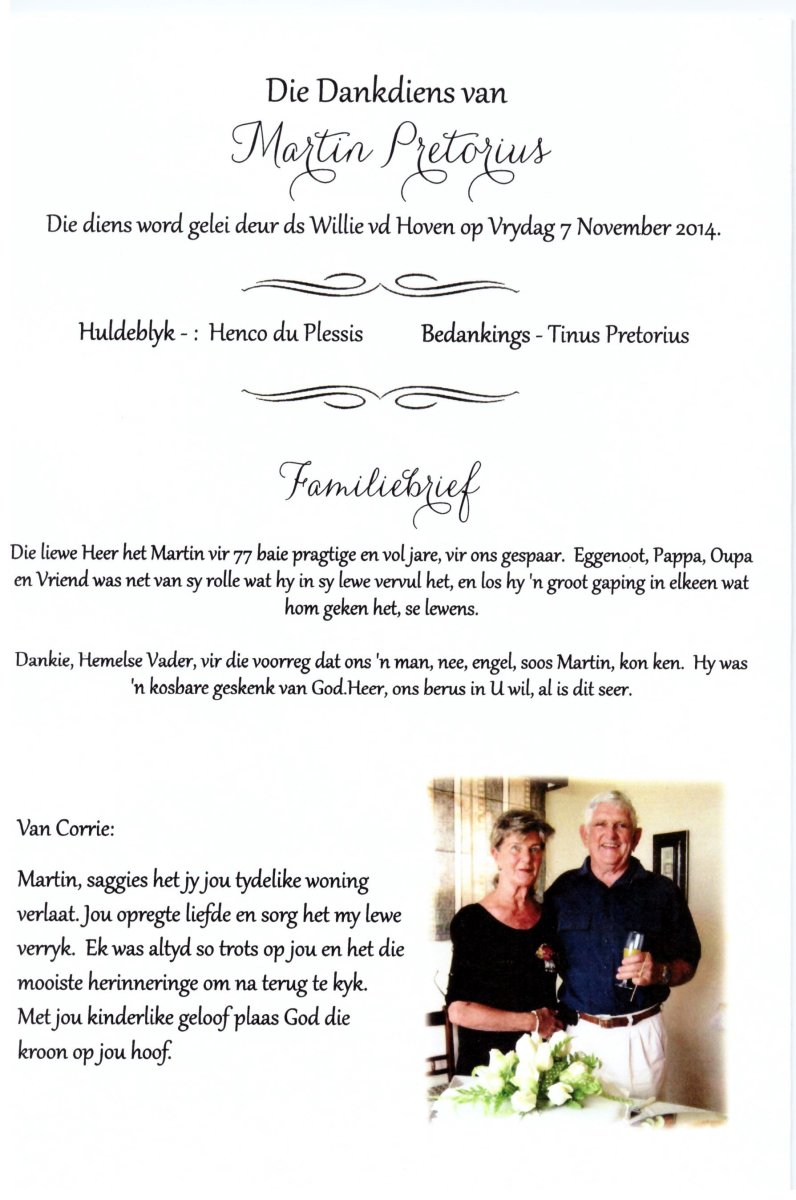 Die Dankdiens van
Martin Pretorius
Die diens word gelei deur ds Willie vd Hoven op Vrydag 7 November 2014.
Huldeblyk - : Henco du Plessis Bedankings - Tinus Pretorius
Familiebrief
Die liewe Heer het Martin vir 77 baie pragtige en vol jare, vir ons gespaar. Eggenoot, Pappa, Oupa
en Vriend was net van sy rolle wat hy in sy lewe vervul het, en los hy 'n groot gaping in elkeen wat
hom geken het, se lewens.
Dankie, Hemelse Vader, vir die voorreg dat ons 'n man, nee, engel, soos Martin, kon ken. Hy was
'n kosbare geskenk van God.Heer, ons berus in U wil, al is dit seer.
Van Corrie:
Martin, saggies het jy jou tydelike woning
verlaat. Jou opregte liefde en sorg het my lewe
verryk. Ek was altyd so trots op jou en het die
mooiste herinneringe om na terug te kyk.
Met jou kinderlike geloof plaas God die
kroon op jou hoof.